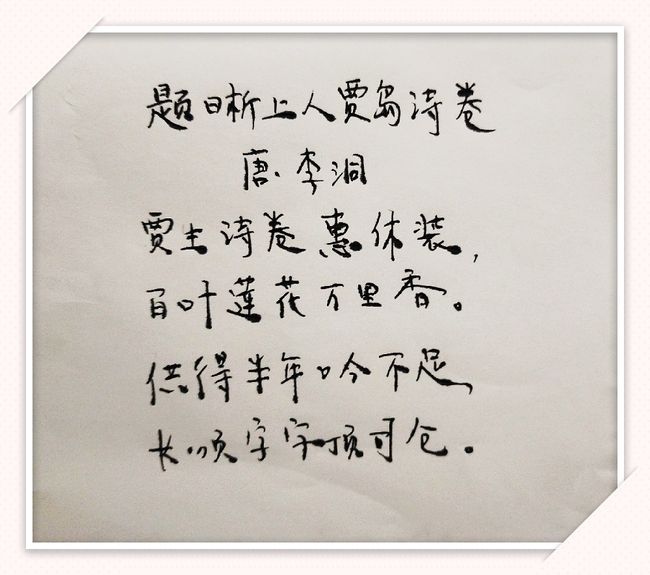 题晰上人贾岛诗卷
唐·李洞
贾生诗卷惠休装,
百叶莲花万里香。
供得半年吟不足,
长须字字顶司仓。